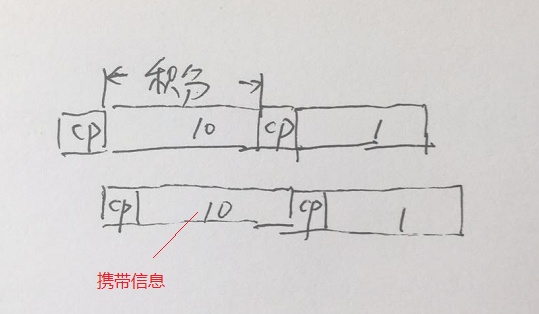 积分
cp 10 cp 1
cp 10 cp 1
携带信息